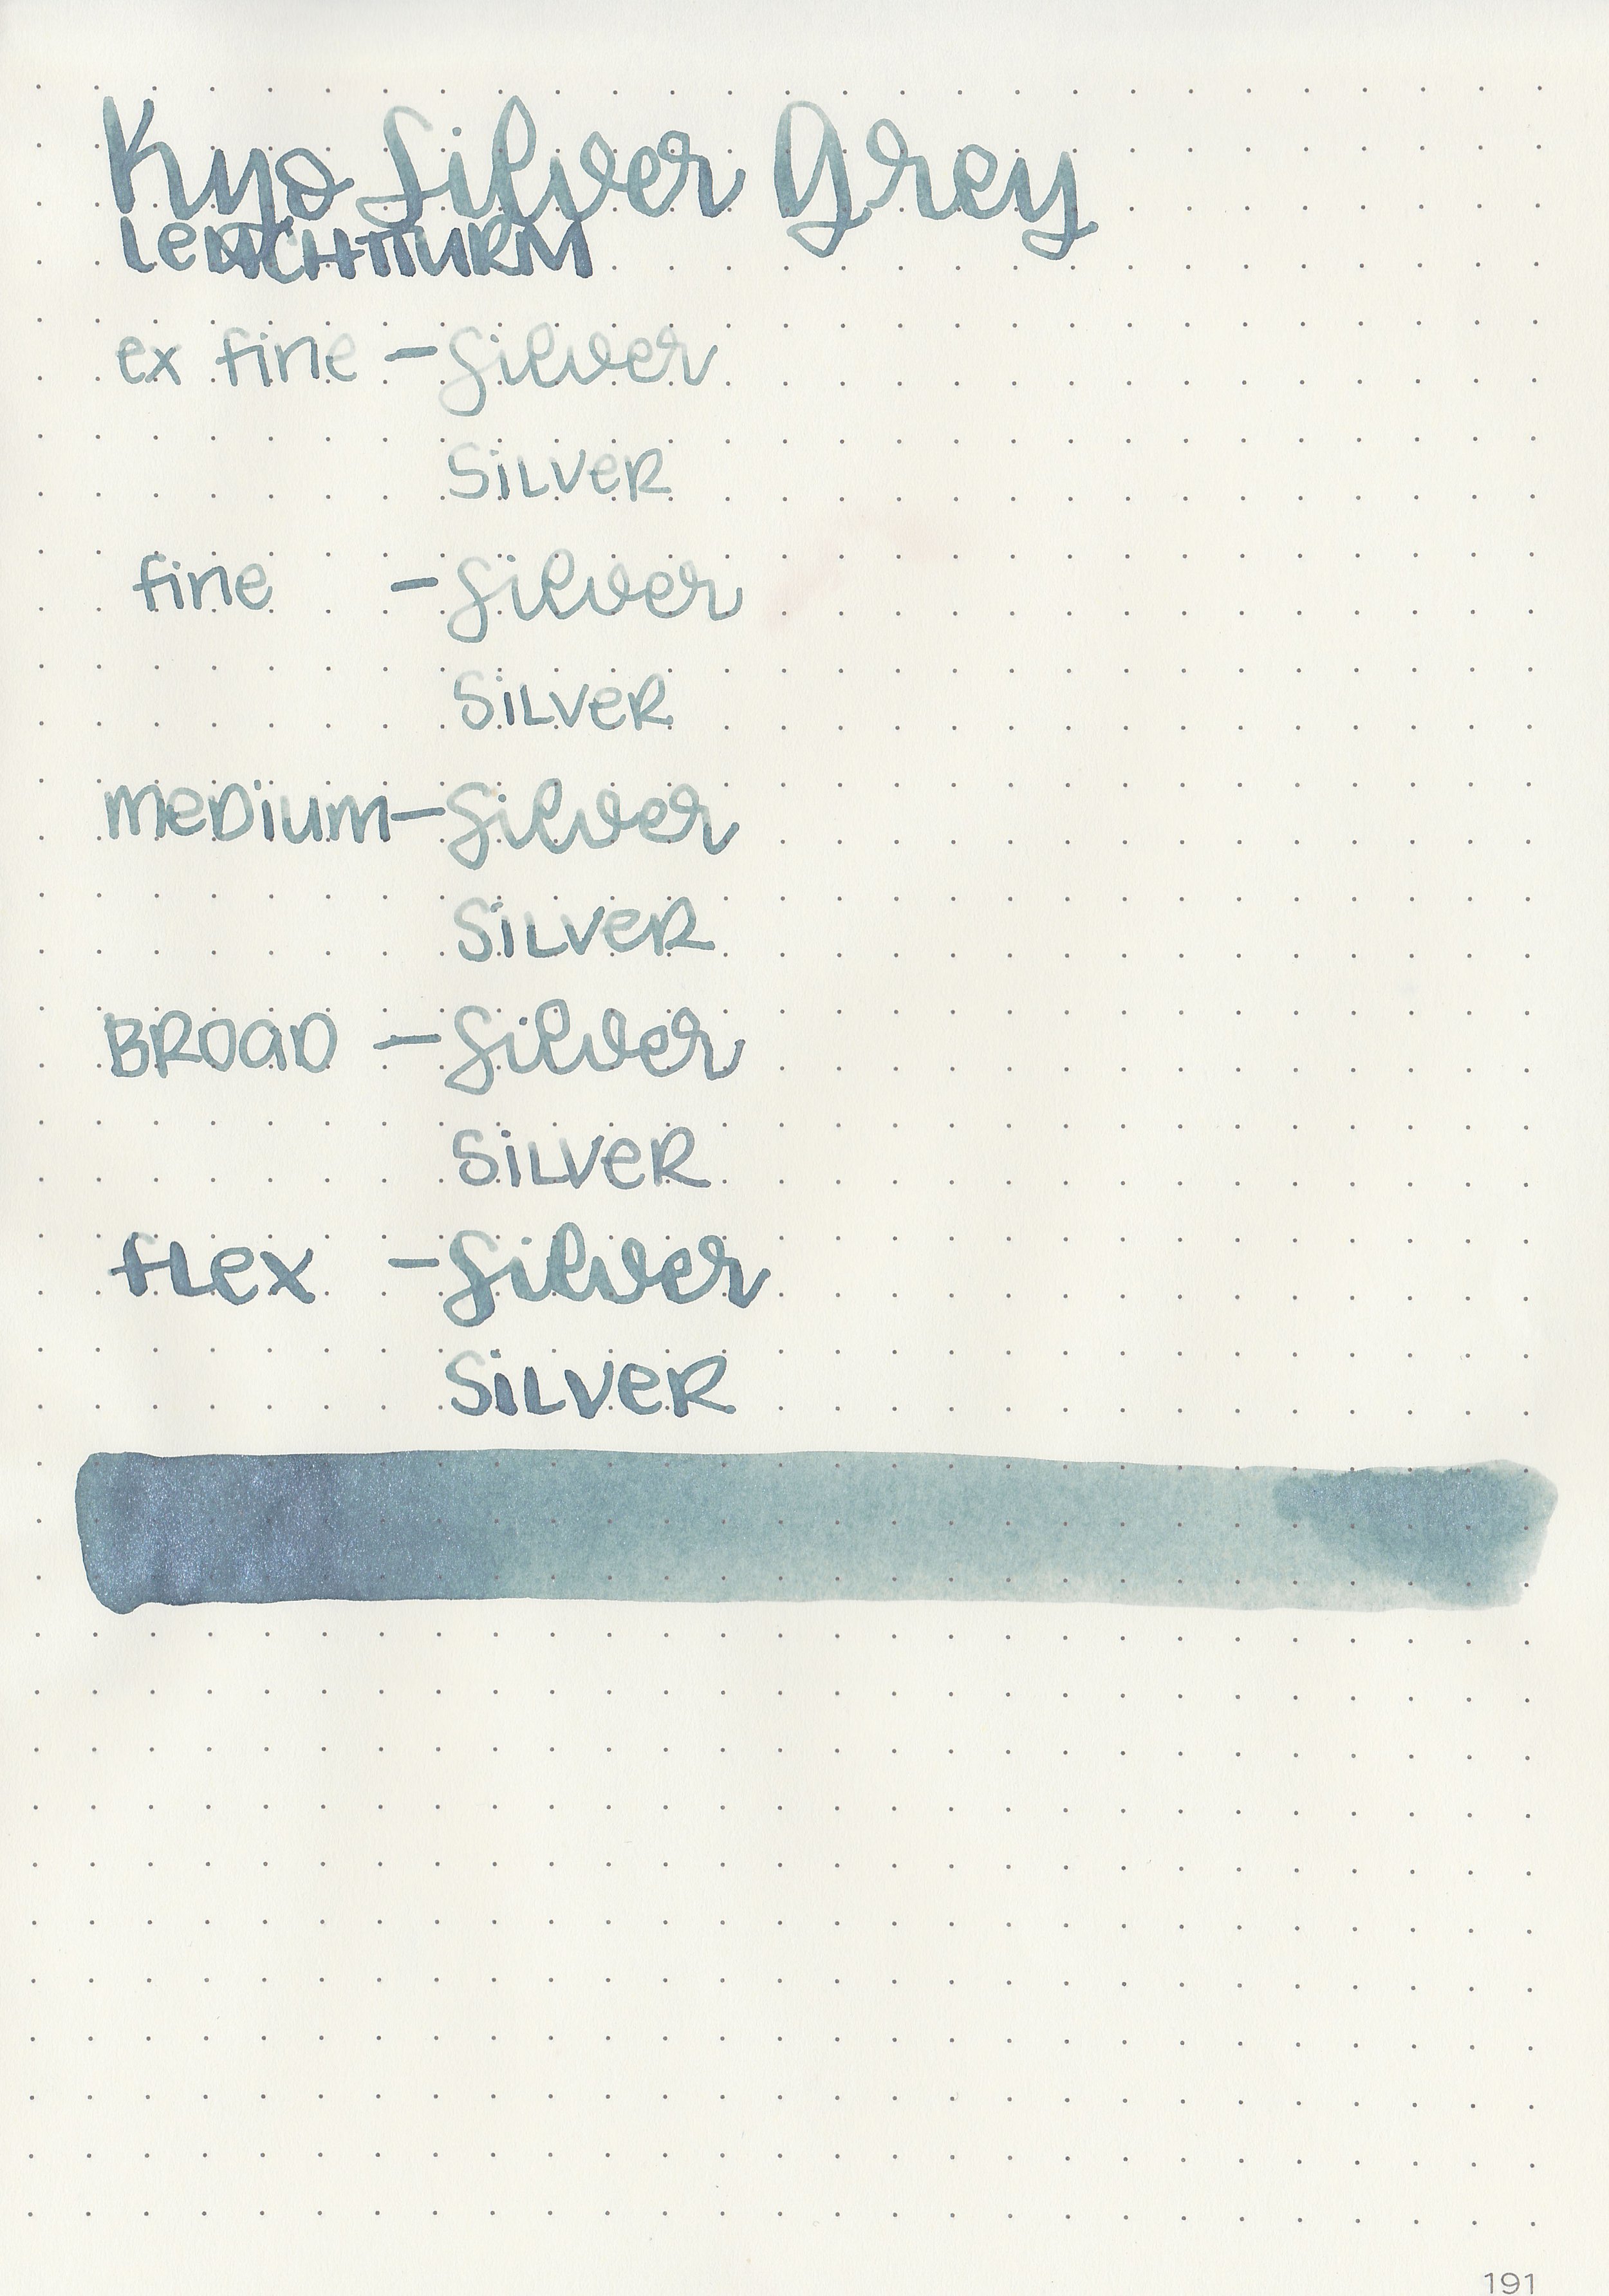 Kyo Silver Grey
LeUCHTTURM
ex fine - Silver
SiLVeR
fine - Silver
SiLVeR
meDium - Silver
SiLVeR
BROaD - Silver
SiLVeR
fLex - Silver
SiLVeR
191